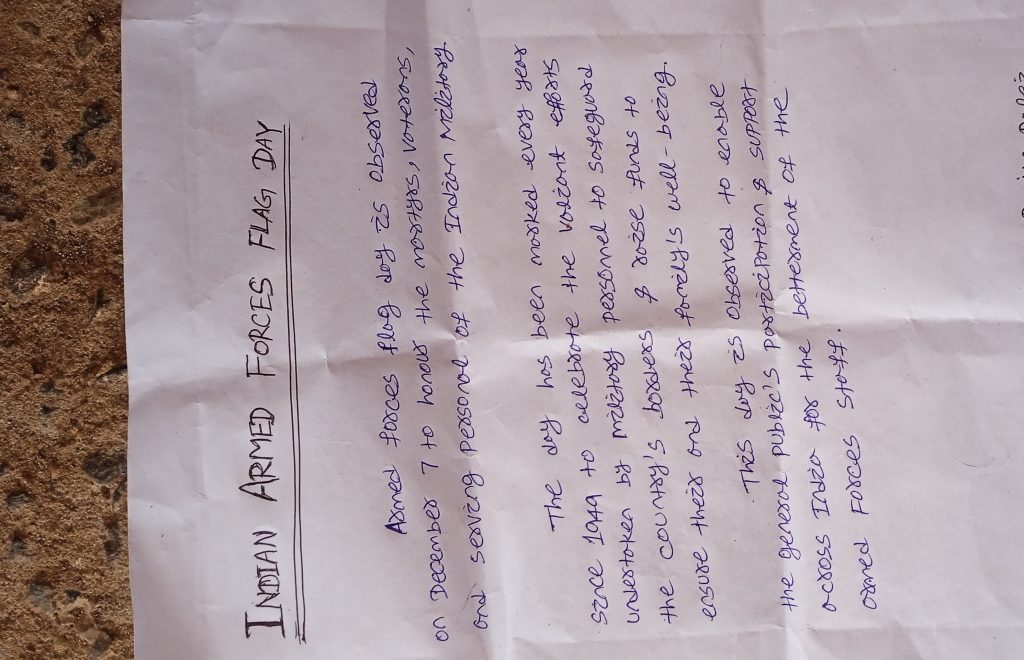 INDIAN ARMED FORCES FLAG DAY
Armed forces flag day is observed
on December 7 to honour the martyrs, vaterans,
and serving personal of the Indian Military
The day has been marked every year
since 1949 to celebrate the valiant efforts
undertaken by military personnel to safeguard
the country's borders & raise funds to
ensure their and their family's well-being.
This day is observed to enable
the general public's participation & support
across India for the betterment of the
armed Forces staff.